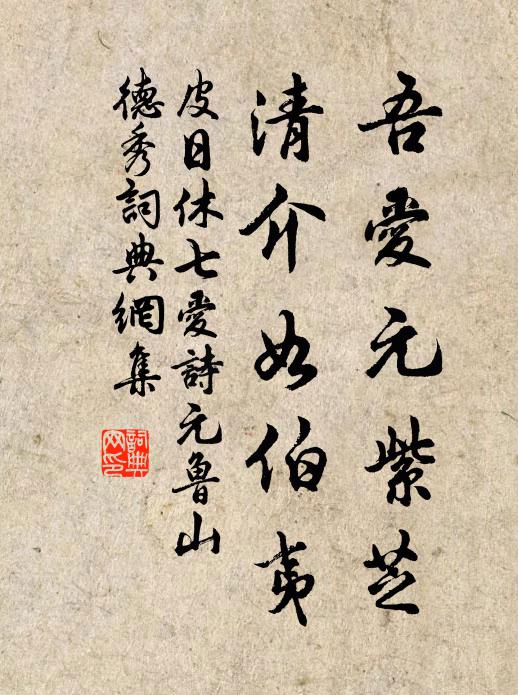 吾愛元紫芝
清介如伯夷
皮日休七愛詩元魯山
德秀詞典網集
詞典
网印